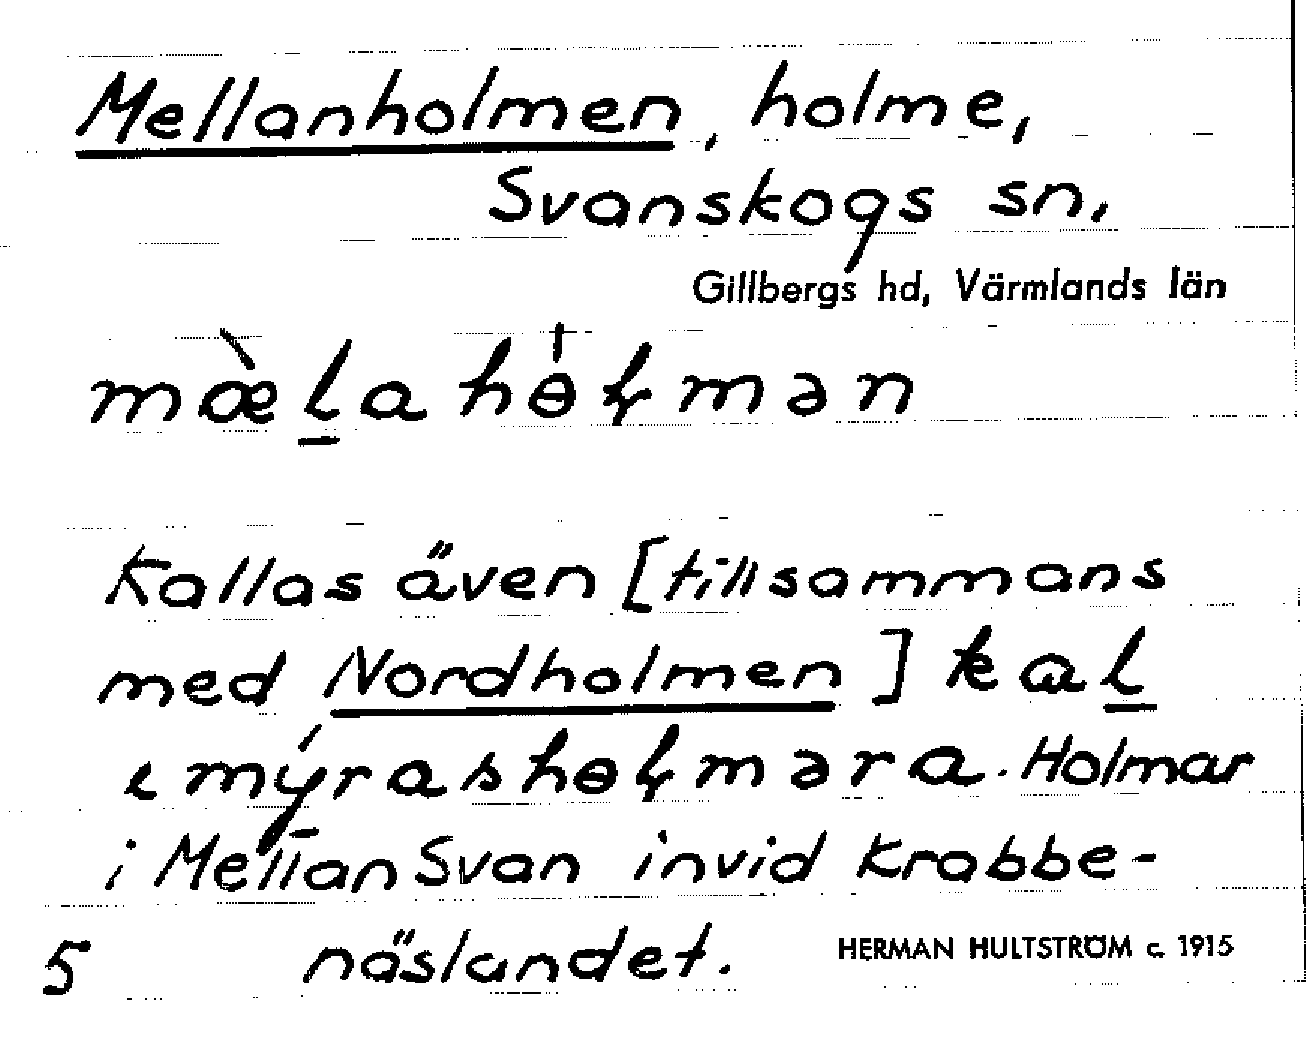 Mellanholmen, holme,
Svanskogs sn,
Gillbergs hd, Värmlands län
mœ̀l̲a hɵ̍ɫmən
Kallas även [tillsammans
med Nordholmen] kal̲
ɩ mýrashɵɫməra. Holmar
i Mellan Svan invid Krabbe-
näslandet.
HERMAN HULTSTRÖM c. 1915
5